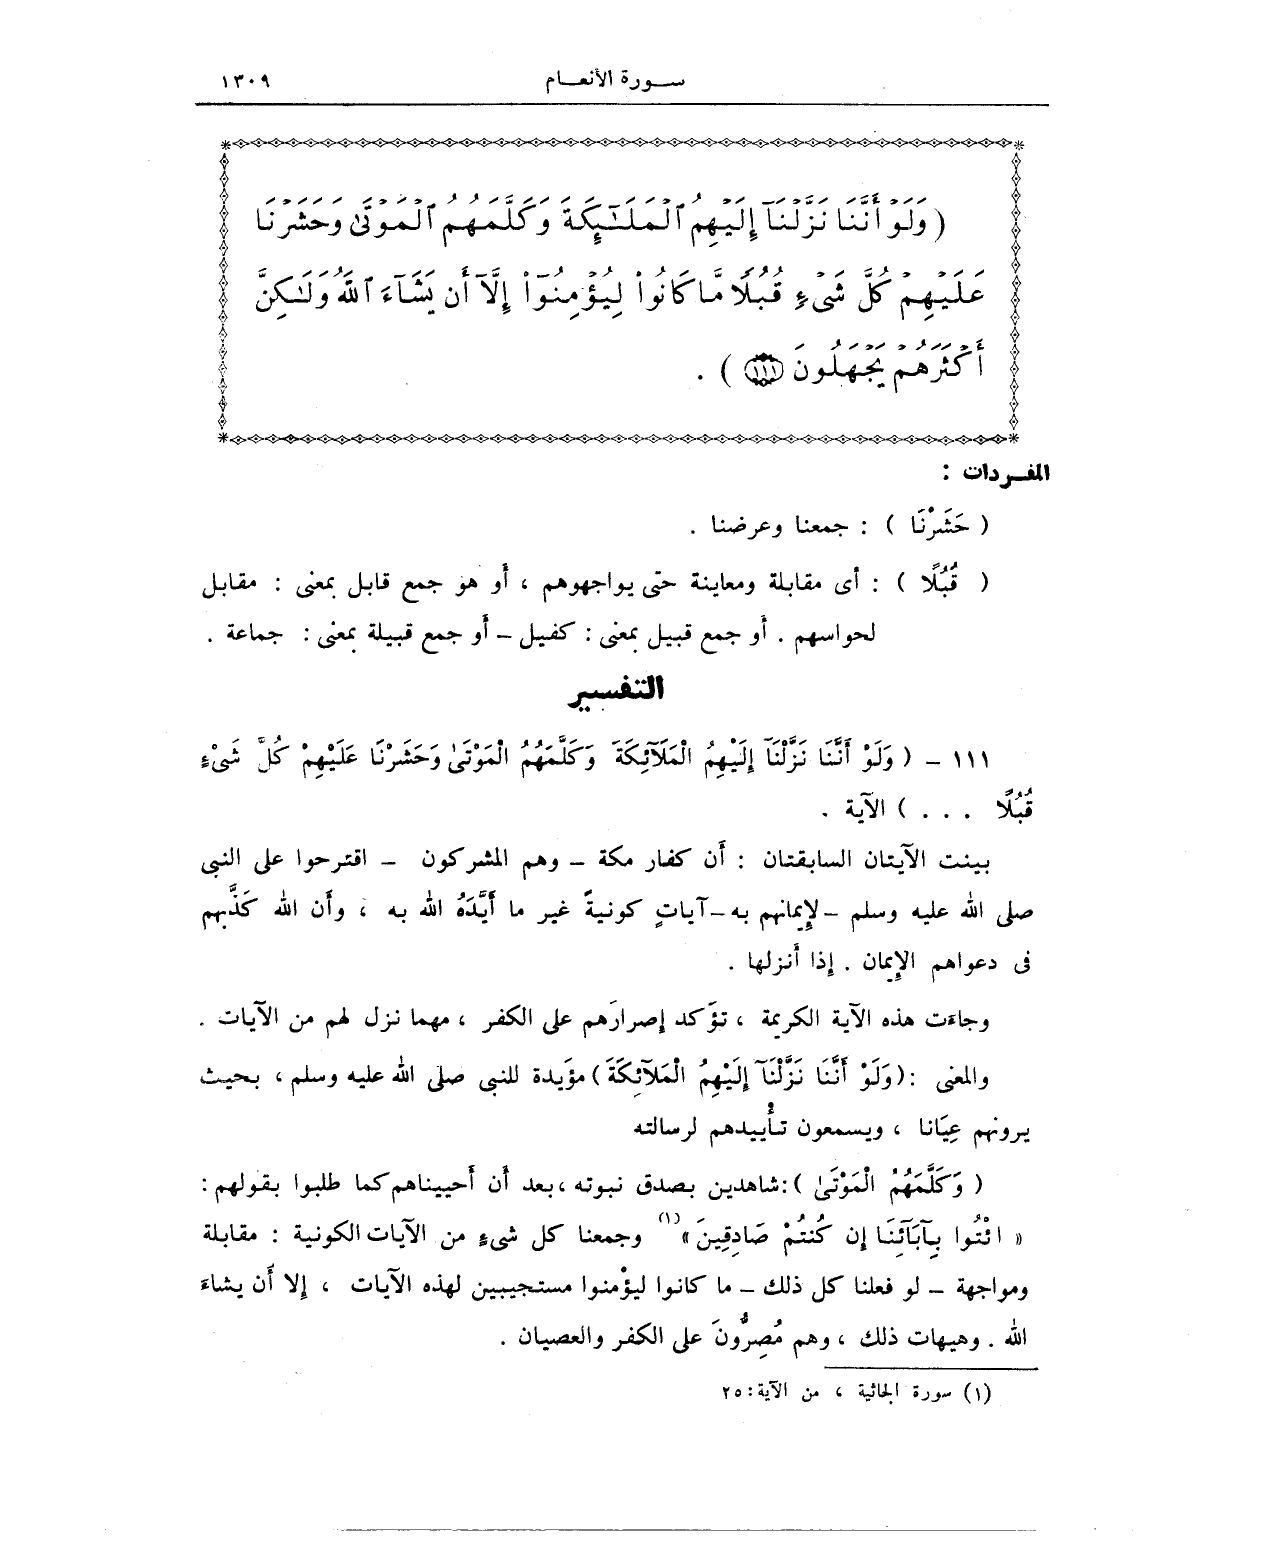 سورة الأنعام ١٣٠٩
( وَلَوْ أَنَّنَا نَزَّلْنَآ إِلَيْهِمُ ٱلْمَلَٰٓئِكَةَ وَكَلَّمَهُمُ ٱلْمَوْتَىٰ وَحَشَرْنَا
عَلَيْهِمْ كُلَّ شَىْءٍ قُبُلًا مَّا كَانُوا۟ لِيُؤْمِنُوٓا۟ إِلَّآ أَن يَشَآءَ ٱللَّهُ وَلَٰكِنَّ
أَكْثَرَهُمْ يَجْهَلُونَ ١١١ ) .
المفردات :
( حَشَرْنَا ) : جمعنا وعرضنا .
( قُبُلًا ) : أى مقابلة ومعاينة حتى يواجهوهم ، أو هو جمع قابل بمعنى : مقابل
لحواسهم . أو جمع قبيل بمعنى : كفيل – أو جمع قبيلة بمعنى : جماعة .
التفسير
١١١ – ( وَلَوْ أَنَّنَا نَزَّلْنَآ إِلَيْهِمُ الْمَلَآئِكَةَ وَكَلَّمَهُمُ الْمَوْتَىٰ وَحَشَرْنَا عَلَيْهِمْ كُلَّ شَىْءٍ
قُبُلًا . . . ) الآية .
بينت الآيتان السابقتان : أن كفار مكة – وهم المشركون – اقترحوا على النبى
صلى الله عليه وسلم – لإيمانهم به – آياتٍ كونيةً غير ما أَيَّدَهُ الله به ، وأن الله كَذَّبهم
فى دعواهم الإيمان . إذا أنزلها .
وجاءت هذه الآية الكريمة ، تؤكد إصرارَهم على الكفر ، مهما نزل لهم من الآيات .
والمعنى : (وَلَوْ أَنَّنَا نَزَّلْنَآ إِلَيْهِمُ الْمَلَآئِكَةَ) مؤيدة للنبى صلى الله عليه وسلم ، بحيث
يرونهم عِيَانا ، ويسمعون تأييدهم لرسالته
( وَكَلَّمَهُمُ الْمَوْتَىٰ ) : شاهدين بصدق نبوته ، بعد أن أحييناهم كما طلبوا بقولهم :
« ائْتُوا بِآبَآئِنَا إِن كُنتُمْ صَادِقِينَ » (١) وجمعنا كل شىءٍ من الآيات الكونية : مقابلة
ومواجهة – لو فعلنا كل ذلك – ما كانوا ليؤْمنوا مستجيبين لهذه الآيات ، إلا أن يشاءَ
الله . وهيهات ذلك ، وهم مُصِرُّونَ على الكفر والعصيان .
(١) سورة الجاثية ، من الآية : ٢٥